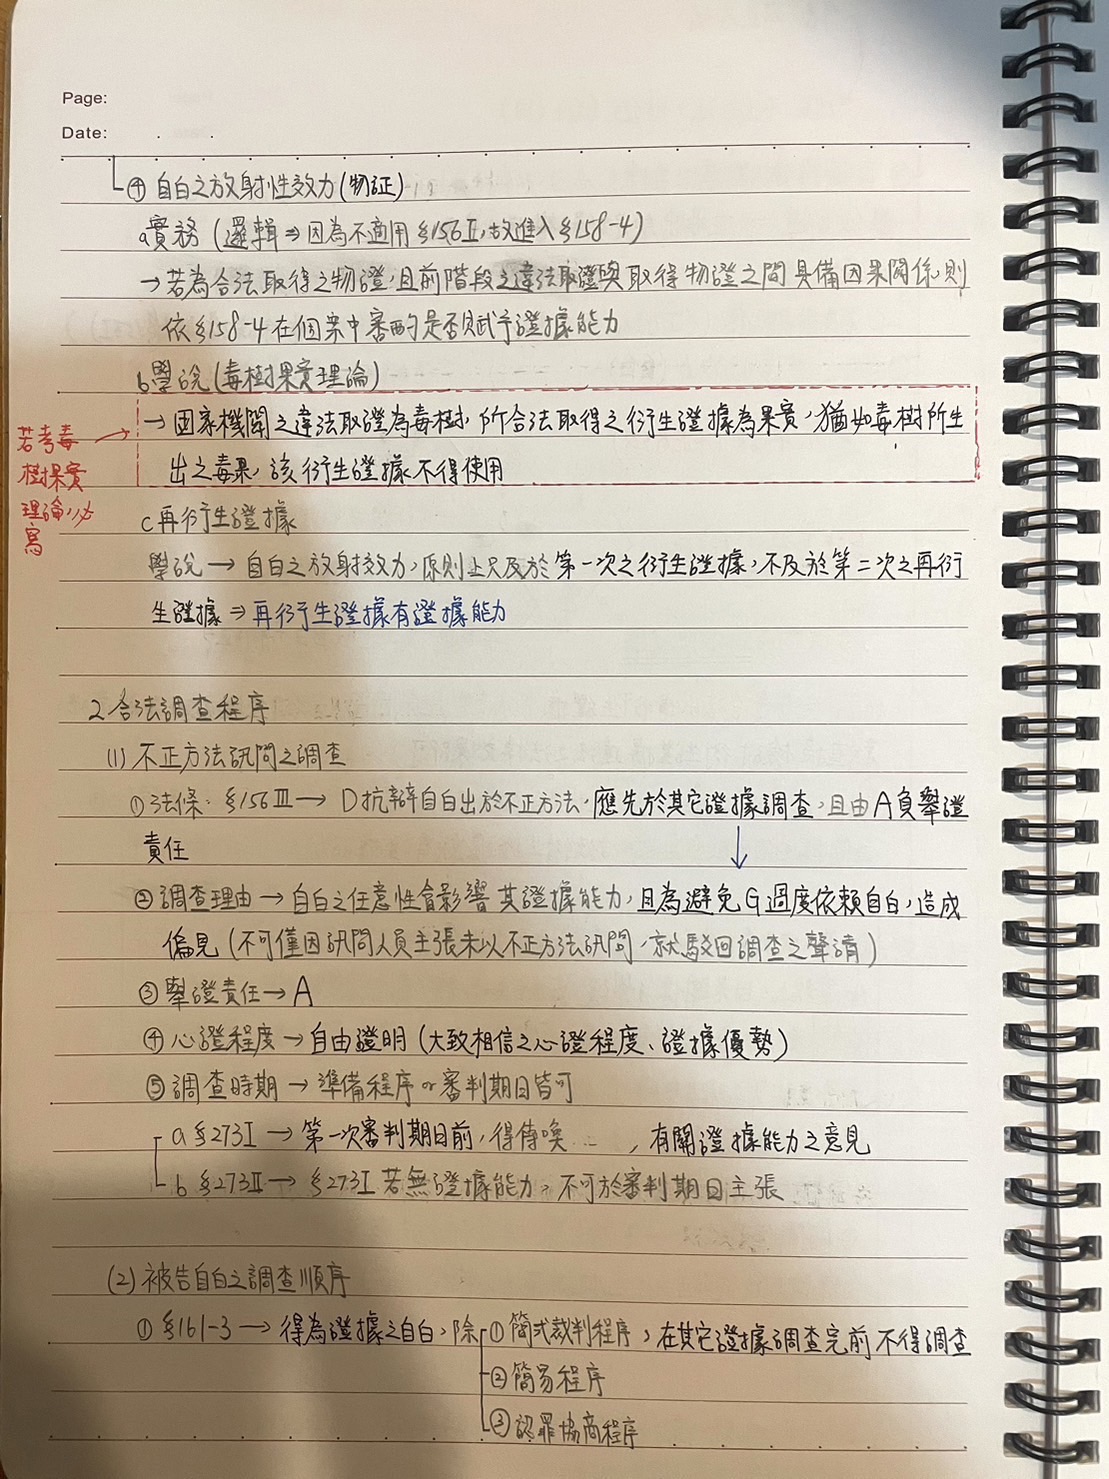 Page:
Date: . .
④ 自白之放射性效力(物証)
a實務 (邏輯⇒因為不適用§156Ⅱ,故進入§158-4)
→若為合法取得之物證,且前階段之違法取證與取得物證之間具備因果關係,則
依§158-4在個案中審酌是否賦予證據能力
b學說(毒樹果實理論)
→國家機關之違法取證為毒樹,所合法取得之衍生證據為果實,猶如毒樹所生
出之毒果,該衍生證據不得使用
若考毒
樹果實
理論,必
寫
c再衍生證據
學說→自白之放射效力,原則上只及於第一次之衍生證據,不及於第二次之再衍
生證據⇒再衍生證據有證據能力
2.合法調查程序
(1)不正方法訊問之調查
①法條:§156Ⅲ→D抗辯自白出於不正方法,應先於其它證據調查,且由A負舉證
責任
②調查理由→自白之任意性會影響其證據能力,且為避免G過度依賴自白,造成
偏見(不可僅因訊問人員主張未以不正方法訊問,就駁回調查之聲請)
③舉證責任→A
④心證程度→自由證明(大致相信之心證程度、證據優勢)
⑤調查時期→準備程序or審判期日皆可
a §273Ⅰ→第一次審判期日前,得傳喚...,有關證據能力之意見
b §273Ⅱ→§273Ⅰ若無證據能力,不可於審判期日主張
(2)被告自白之調查順序
①§161-3→得為證據之自白,除①簡式裁判程序,在其它證據調查完前不得調查
②簡易程序
③認罪協商程序